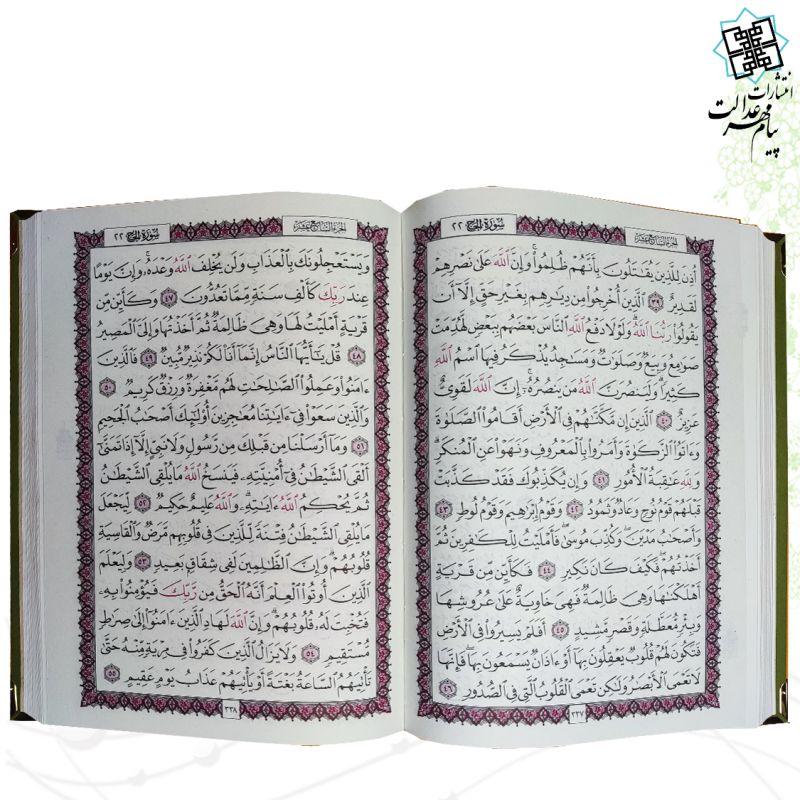 انتشارات
پیام مهر عدالت
الجزء السابع عشر
سورة الحج ٢٢
أُذِنَ لِلَّذِينَ يُقَٰتَلُونَ بِأَنَّهُمْ ظُلِمُوا۟ ۚ وَإِنَّ ٱللَّهَ عَلَىٰ نَصْرِهِمْ
لَقَدِيرٌ ٣٩ ٱلَّذِينَ أُخْرِجُوا۟ مِن دِيَٰرِهِم بِغَيْرِ حَقٍّ إِلَّآ أَن
يَقُولُوا۟ رَبُّنَا ٱللَّهُ ۗ وَلَوْلَا دَفْعُ ٱللَّهِ ٱلنَّاسَ بَعْضَهُم بِبَعْضٍ لَّهُدِّمَتْ
صَوَٰمِعُ وَبِيَعٌ وَصَلَوَٰتٌ وَمَسَٰجِدُ يُذْكَرُ فِيهَا ٱسْمُ ٱللَّهِ
كَثِيرًا ۗ وَلَيَنصُرَنَّ ٱللَّهُ مَن يَنصُرُهُۥٓ ۗ إِنَّ ٱللَّهَ لَقَوِىٌّ
عَزِيزٌ ٤٠ ٱلَّذِينَ إِن مَّكَّنَّٰهُمْ فِى ٱلْأَرْضِ أَقَامُوا۟ ٱلصَّلَوٰةَ
وَءَاتَوُا۟ ٱلزَّكَوٰةَ وَأَمَرُوا۟ بِٱلْمَعْرُوفِ وَنَهَوْا۟ عَنِ ٱلْمُنكَرِ ۗ
وَلِلَّهِ عَٰقِبَةُ ٱلْأُمُورِ ٤١ وَإِن يُكَذِّبُوكَ فَقَدْ كَذَّبَتْ
قَبْلَهُمْ قَوْمُ نُوحٍ وَعَادٌ وَثَمُودُ ٤٢ وَقَوْمُ إِبْرَٰهِيمَ وَقَوْمُ لُوطٍ ٤٣
وَأَصْحَٰبُ مَدْيَنَ ۖ وَكُذِّبَ مُوسَىٰ فَأَمْلَيْتُ لِلْكَٰفِرِينَ ثُمَّ
أَخَذْتُهُمْ ۖ فَكَيْفَ كَانَ نَكِيرِ ٤٤ فَكَأَيِّن مِّن قَرْيَةٍ
أَهْلَكْنَٰهَا وَهِىَ ظَالِمَةٌ فَهِىَ خَاوِيَةٌ عَلَىٰ عُرُوشِهَا
وَبِئْرٍ مُّعَطَّلَةٍ وَقَصْرٍ مَّشِيدٍ ٤٥ أَفَلَمْ يَسِيرُوا۟ فِى ٱلْأَرْضِ
فَتَكُونَ لَهُمْ قُلُوبٌ يَعْقِلُونَ بِهَآ أَوْ ءَاذَانٌ يَسْمَعُونَ بِهَا ۖ فَإِنَّهَا
لَا تَعْمَى ٱلْأَبْصَٰرُ وَلَٰكِن تَعْمَى ٱلْقُلُوبُ ٱلَّتِى فِى ٱلصُّدُورِ ٤٦
٣٣٧
الجزء السابع عشر
سورة الحج ٢٢
وَيَسْتَعْجِلُونَكَ بِٱلْعَذَابِ وَلَن يُخْلِفَ ٱللَّهُ وَعْدَهُۥ ۚ وَإِنَّ يَوْمًا
عِندَ رَبِّكَ كَأَلْفِ سَنَةٍ مِّمَّا تَعُدُّونَ ٤٧ وَكَأَيِّن مِّن
قَرْيَةٍ أَمْلَيْتُ لَهَا وَهِىَ ظَالِمَةٌ ثُمَّ أَخَذْتُهَا وَإِلَىَّ ٱلْمَصِيرُ
٤٨ قُلْ يَٰٓأَيُّهَا ٱلنَّاسُ إِنَّمَآ أَنَا۠ لَكُمْ نَذِيرٌ مُّبِينٌ ٤٩ فَٱلَّذِينَ
ءَامَنُوا۟ وَعَمِلُوا۟ ٱلصَّٰلِحَٰتِ لَهُم مَّغْفِرَةٌ وَرِزْقٌ كَرِيمٌ ٥٠
وَٱلَّذِينَ سَعَوْا۟ فِىٓ ءَايَٰتِنَا مُعَٰجِزِينَ أُو۟لَٰٓئِكَ أَصْحَٰبُ ٱلْجَحِيمِ
٥١ وَمَآ أَرْسَلْنَا مِن قَبْلِكَ مِن رَّسُولٍ وَلَا نَبِىٍّ إِلَّآ إِذَا تَمَنَّىٰٓ
أَلْقَى ٱلشَّيْطَٰنُ فِىٓ أُمْنِيَّتِهِۦ فَيَنسَخُ ٱللَّهُ مَا يُلْقِى ٱلشَّيْطَٰنُ
ثُمَّ يُحْكِمُ ٱللَّهُ ءَايَٰتِهِۦ ۗ وَٱللَّهُ عَلِيمٌ حَكِيمٌ ٥٢ لِّيَجْعَلَ
مَا يُلْقِى ٱلشَّيْطَٰنُ فِتْنَةً لِّلَّذِينَ فِى قُلُوبِهِم مَّرَضٌ وَٱلْقَاسِيَةِ
قُلُوبُهُمْ ۗ وَإِنَّ ٱلظَّٰلِمِينَ لَفِى شِقَاقٍۭ بَعِيدٍ ٥٣ وَلِيَعْلَمَ
ٱلَّذِينَ أُوتُوا۟ ٱلْعِلْمَ أَنَّهُ ٱلْحَقُّ مِن رَّبِّكَ فَيُؤْمِنُوا۟ بِهِۦ
فَتُخْبِتَ لَهُۥ قُلُوبُهُمْ ۗ وَإِنَّ ٱللَّهَ لَهَادِ ٱلَّذِينَ ءَامَنُوٓا۟ إِلَىٰ صِرَٰطٍ
مُّسْتَقِيمٍ ٥٤ وَلَا يَزَالُ ٱلَّذِينَ كَفَرُوا۟ فِى مِرْيَةٍ مِّنْهُ حَتَّىٰ
تَأْتِيَهُمُ ٱلسَّاعَةُ بَغْتَةً أَوْ يَأْتِيَهُمْ عَذَابُ يَوْمٍ عَقِيمٍ ٥٥
٣٣٨